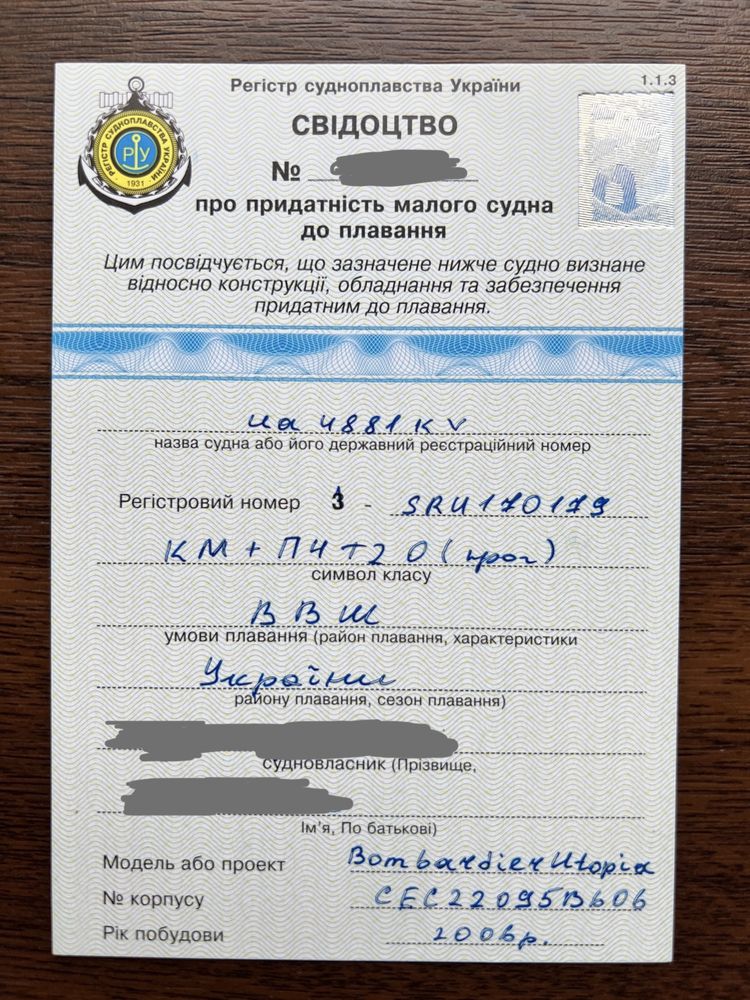 Регістр судноплавства України
1.1.3
РЕГІСТР СУДНОПЛАВСТВА УКРАЇНИ
РУ
1931
СВІДОЦТВО
№
про придатність малого судна
до плавання
Цим посвідчується, що зазначене нижче судно визнане
відносно конструкції, обладнання та забезпечення
придатним до плавання.
ua 4881 KV
назва судна або його державний реєстраційний номер
Регістровий номер 3 - SRU170179
КМ + ПЧТ20 (прог)
символ класу
ВВШ
умови плавання (район плавання, характеристики
України
району плавання, сезон плавання)
судновласник (Прізвище,
Ім'я, По батькові)
Модель або проект Bombardier Utopia
№ корпусу CEC22095B606
Рік побудови 2006р.